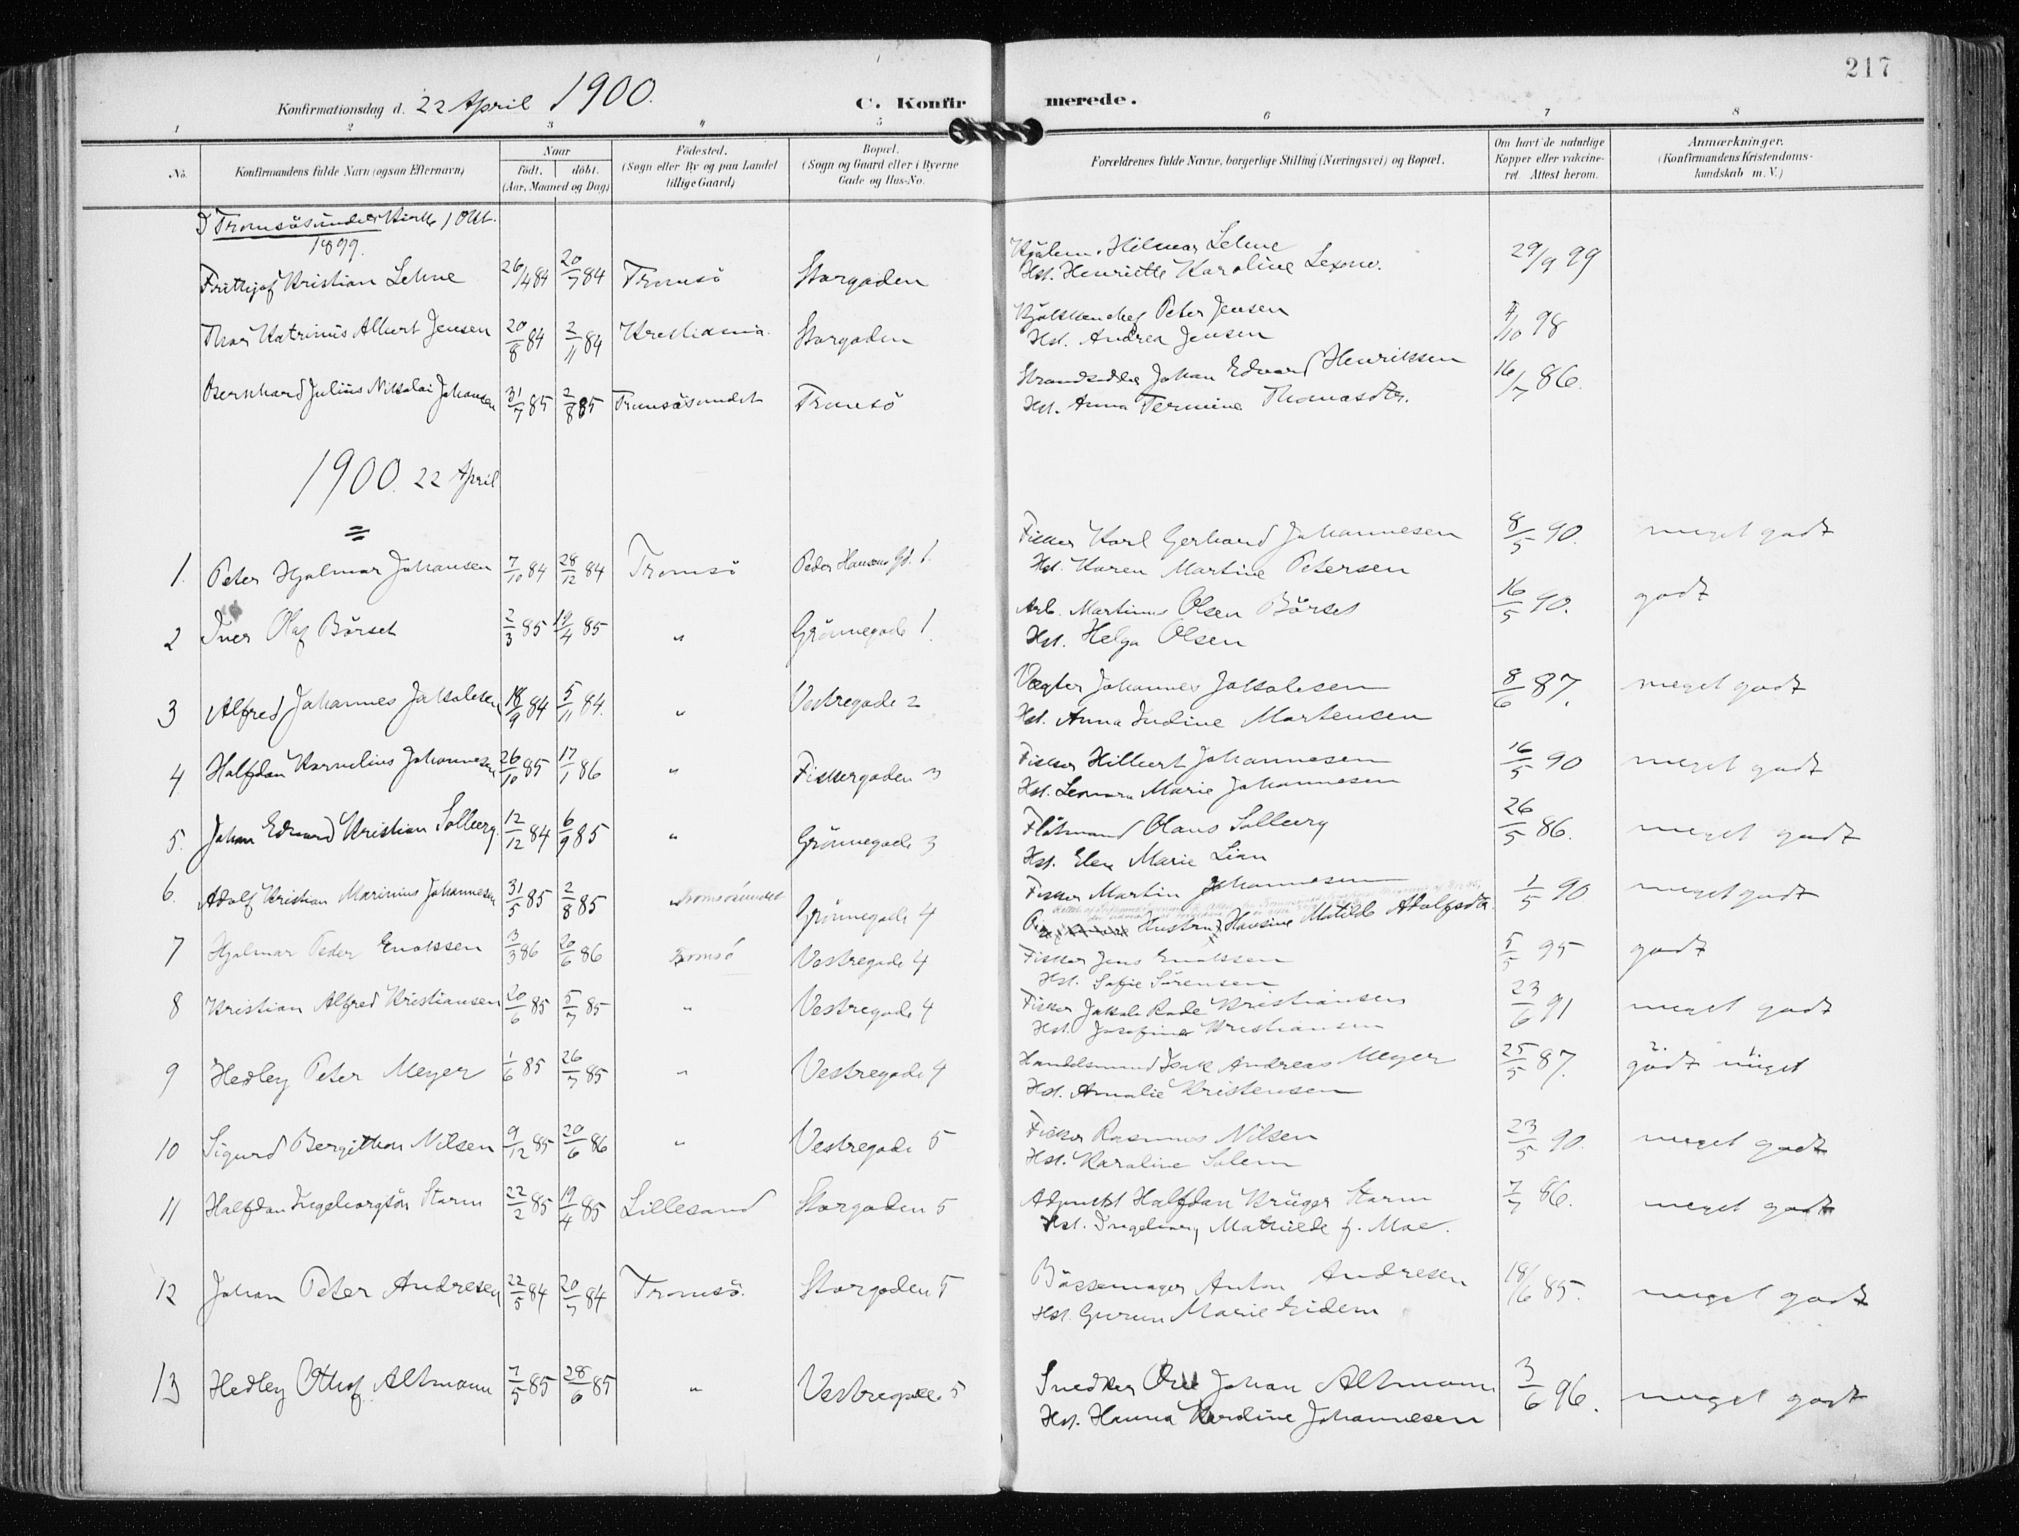 217
Konfirmationsdag d. 22 April 1900.
C. Konfirmerede.
1 2 3 " 5 6 7 8
No. Konfirmandens fulde Navn (ogsaa Efternavn)
Naar
født. døbt.
(Aar, Maaned og Dag)
Fødested.
(Sogn eller By og paa Landet
tillige Gaard)
Bopæl.
(Sogn og Gaard eller i Byerne
Gade og Hus-No.
Forældrenes fulde Navne, borgerlige Stilling (Næringsvei) og Bopæl.
Om havt de naturlige
Kopper eller vaccine-
ret. Attest herom.
Anmærkninger.
(Konfirmandens Kristendoms-
kundskab m. V.)
I Tromsösundets Kirke 1 Okt.
1899.
Frithjof Kristian Lehne 26/4 84 20/7 84 Tromsö Storgaden Hilmar Lehne 29/9 99
Hst. Henriette Karoline
Thor Katrinus Albert Jensen 20/8 84 2/11 84 Kristiania Storgaden Peter Jensen /10 98
Hst. Andrea Jensen
Bernhard Julius Nikolai Johansen 31/7 85 2/8 85 Tromsösundet Tromsö Strandsidder Johan Edvard Henriksen 16/7 86.
Hst. Anna Termine Thomasdtr.
1900. 22 April
1. Peter Hjalmar Johansen 7/10 84 28/12 84 Tromsö Peder Hansens Gd. 1. Fisker Karl Gerhard Johannesen 8/5 90. meget godt
Hst. Karen Martine Petersen
2 Iver Olaf Börset 2/3 85 19/4 85 " Grönnegade 1. Arb. Martinus Olsen Börset 16/5 90. godt
Hst. Helga Olsen
3 Alfred Johannes Jakobsen 18/9 84 5/11 84. " Vestregade 2 Vægter Johannes Jakobsen 8/6 87. meget godt
Hst. Anna Indine Mortensen
4 Halfdan Kornelius Johannesen 26/10 85 17/1 86 " Fiskergaden 3 Fisker Hilbert Johannesen 16/5 90 meget godt
Hst. Leonora Marie Johannesen
5. Johan Edvard Kristian Solberg. 12/12 84 6/9 85 " Grönnegade 3 Flötmand Olaus Solberg 26/5 86. meget godt
Hst. Elen Marie Lian
6. Adolf Kristian Marinius Johannesen 31/5 85 2/8 85 Tromsösundet Grönnegade 4 Fisker Martin Johannesen 1/5 90 meget godt
Hustru Hansine Matilde Adolfsdtr.
7 Hjalmar Peder Enoksen 3/3 86 20/6 86 Tromsö Vestregade 4 Fisker Jens Enoksen 5/5 95 godt
Hst. Sofie Sörensen
8 Kristian Alfred Kristiansen 20/6 85 5/7 85 " Vestregade 4 Fisker Jakob Rade Kristiansen 23/6 91 meget godt
Hst. Josefine Kristiansen
9 Hedley Peter Meyer 1/6 85 26/7 85 " Vestregade 4 Handelsmand Isak Andreas Meyer 25/5 87. godt meget
Hst. Amalie Kristensen
10 Sigurd Bergithon Nilsen 9/12 85 20/6 86 " Vestregade 5 Fisker Rasmus Nilsen 23/5 90. meget godt
Hst. Karoline Salem
11 Halfdan Ingeborgsön Storm 22/2 85 19/4 85 Lillesand Storgaden 5 Adjunkt Halfdan Krüger Storm 7/7 86. meget godt
Hst. Ingeborg Mathilde f. Moe.
12 Johan Peter Andresen 22/5 84 20/7 84 Tromsö. Storgaden 5 Bössemager Anton Andresen 18/6 85. meget godt
Hst. Gurun Marie Eidem
13 Hedley Othof Altmann 7/5 85 28/6 85 " Vestregade 5 Snedker Johan Altmann 3/6 96. meget godt
Hst. Hanna Kardine Johannesen